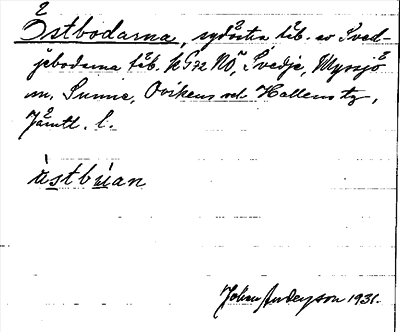 Östbodarna, sydöstra täb. av Sved-
jebodarna täb. k G72 NÖ, Svedje, Myssjö
sn, Sunne, Ovikens och Hallens tg,
Jämtl. l.
ùstbùan
Johan Anderzson 1931.